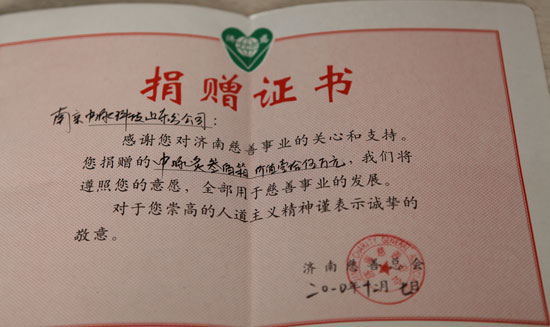 捐赠证书
南京中脉科技山东分公司：
感谢您对济南慈善事业的关心和支持。
您捐赠的中脉灸叁佰箱 价值壹拾伍万元，我们将
遵照您的意愿，全部用于慈善事业的发展。
对于您崇高的人道主义精神谨表示诚挚的
敬意。
CHARITY GENERAL
济南慈善总会
二〇一〇年十二月七日